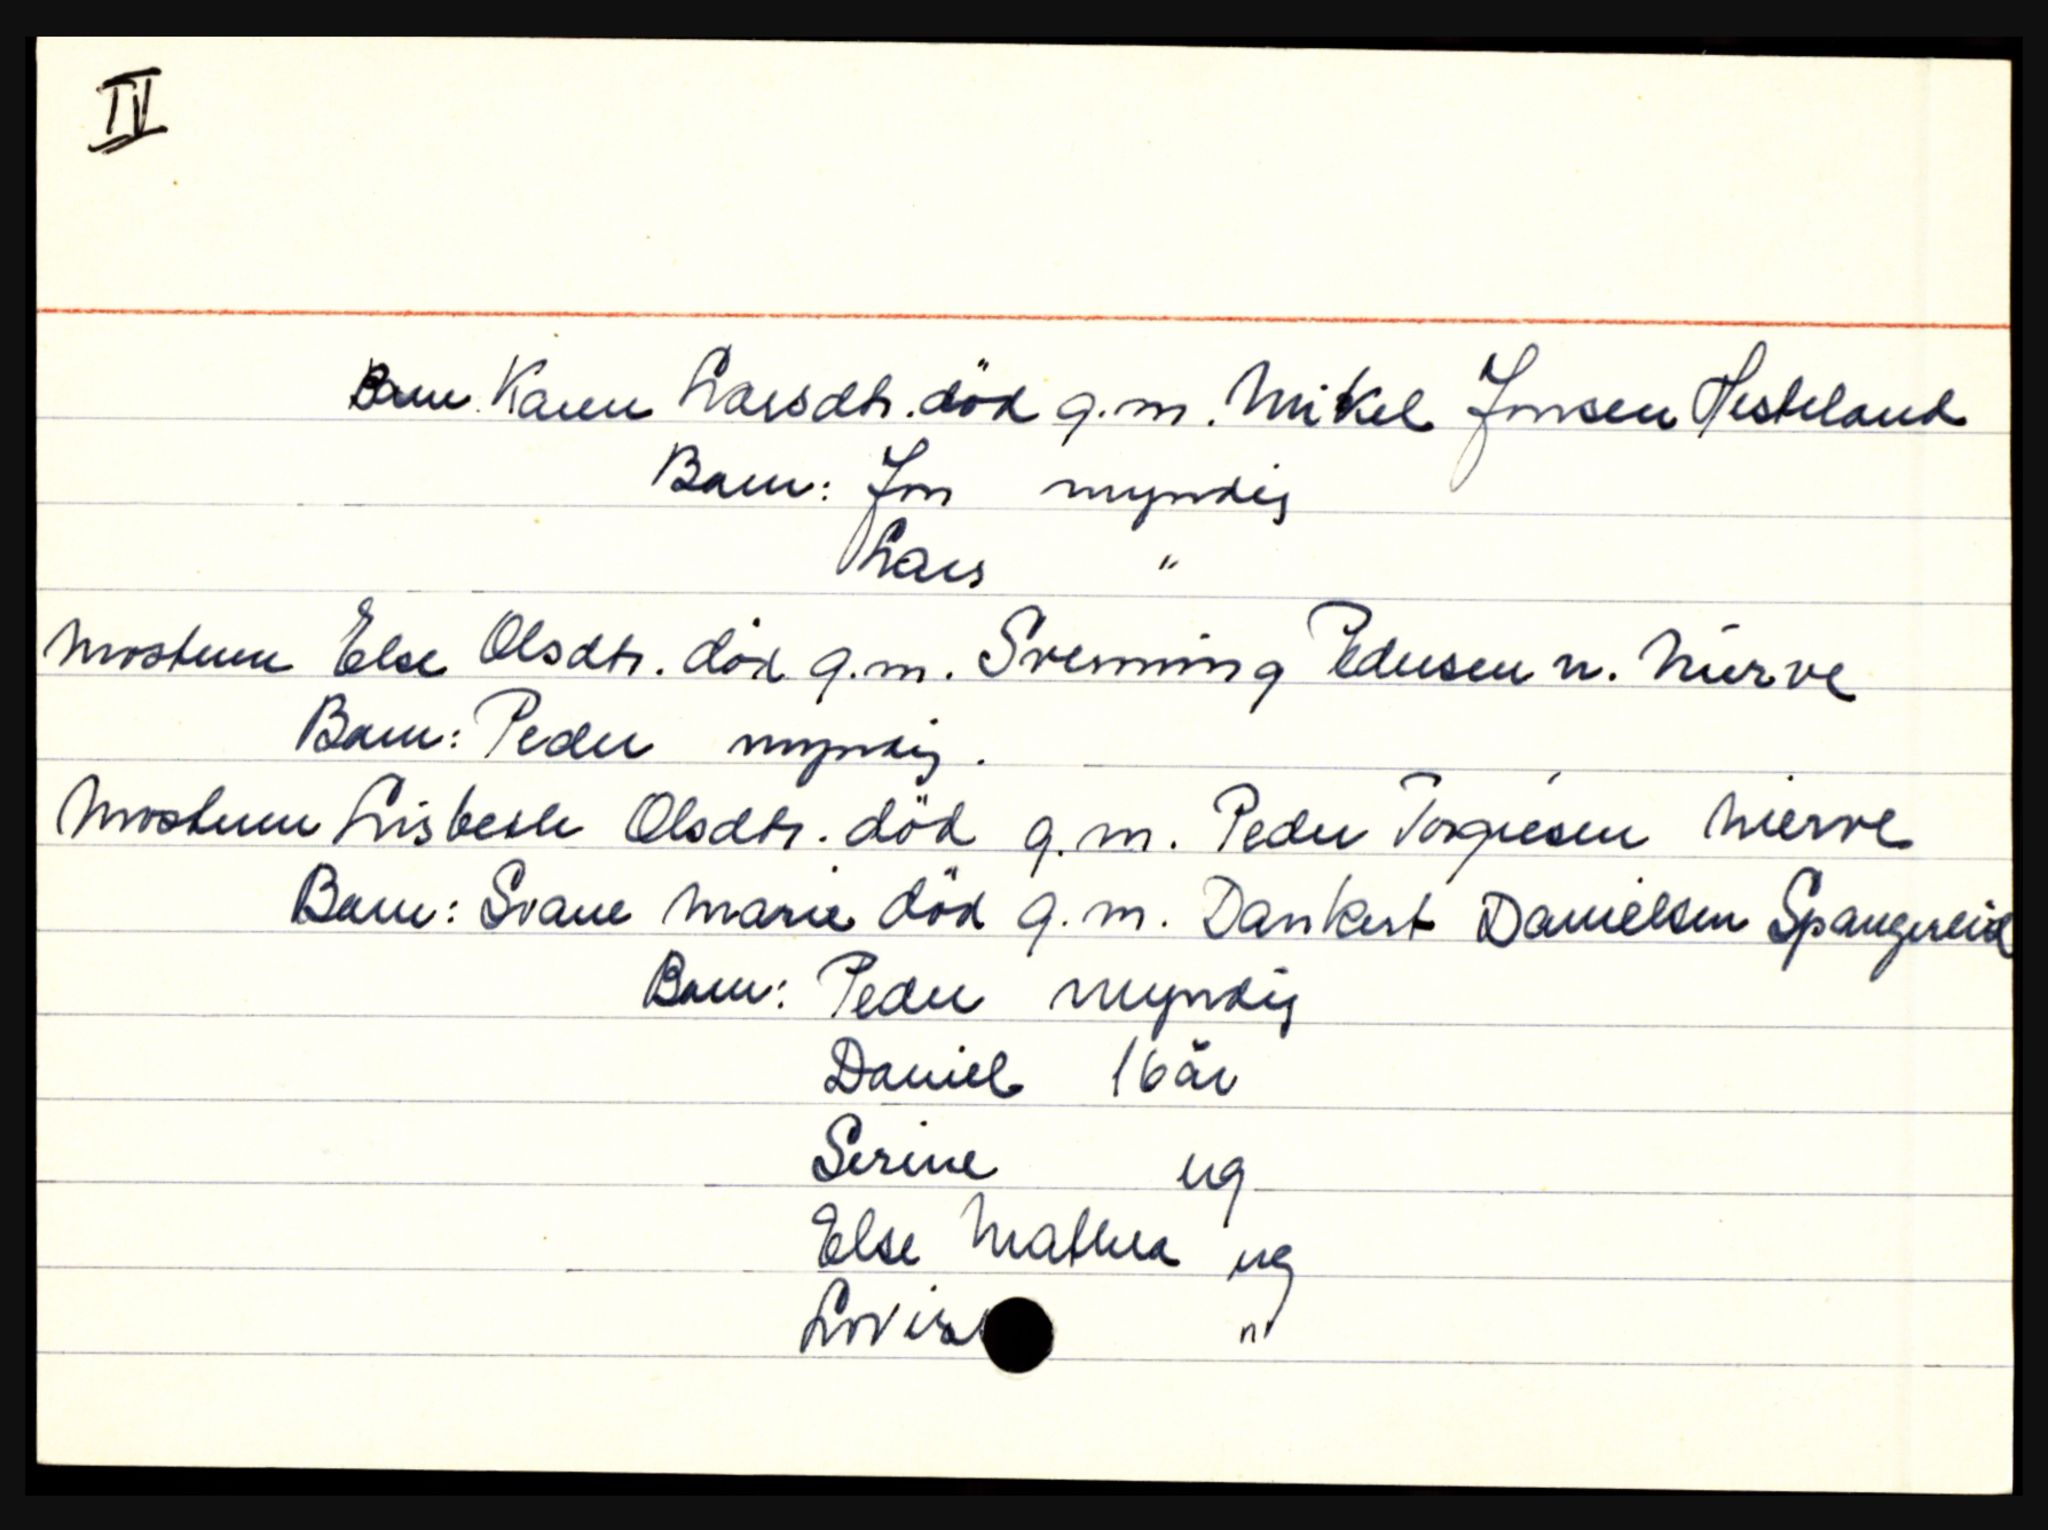 IV
Barn: Karen Larsdtr. död g.m. Mikel Jonsen Hesteland
Barn: Jon myndig
Lars "
Mosteren Else Olsdtr. död g.m. Svenning Pedersen n. Nierve
Barn: Peder myndig.
Mosteren Lisbeth Olsdtr. död g.m. Peder Torgiesen Nierve
Barn: Svane Marie död g.m. Dankert Danielsen Spangereid
Barn: Peder myndig
Daniel 16 år
Serine ug
Else Mathea ug
"